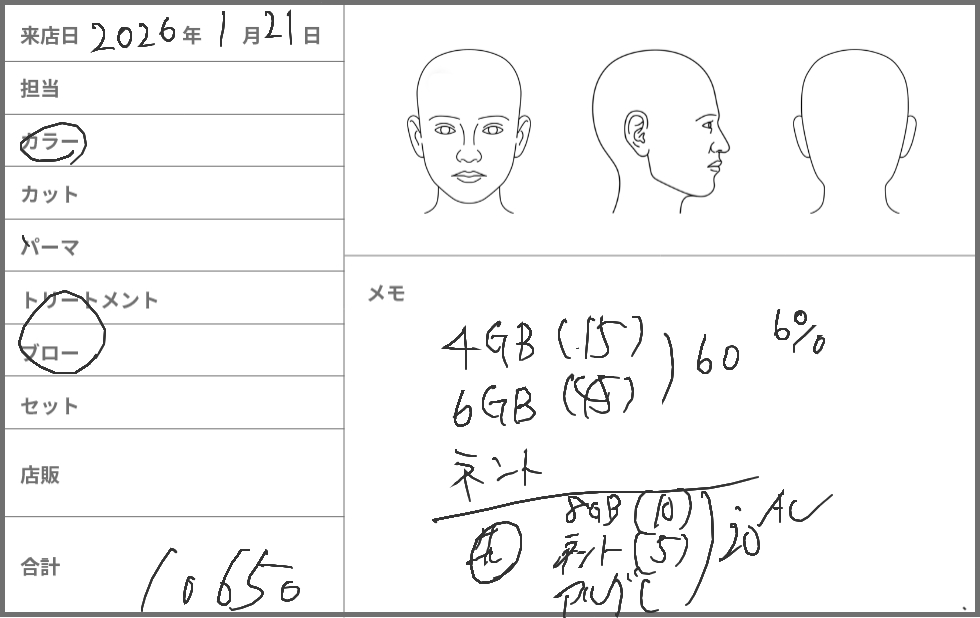 来店日 2026年 1月21日
担当
カラー
カット
パーマ
トリートメント
ブロー
セット
店販
合計 10650
メモ
4GB (15)
6GB (45)
60 6%
ネント
8GB (10)
ネント (5)
20 AC